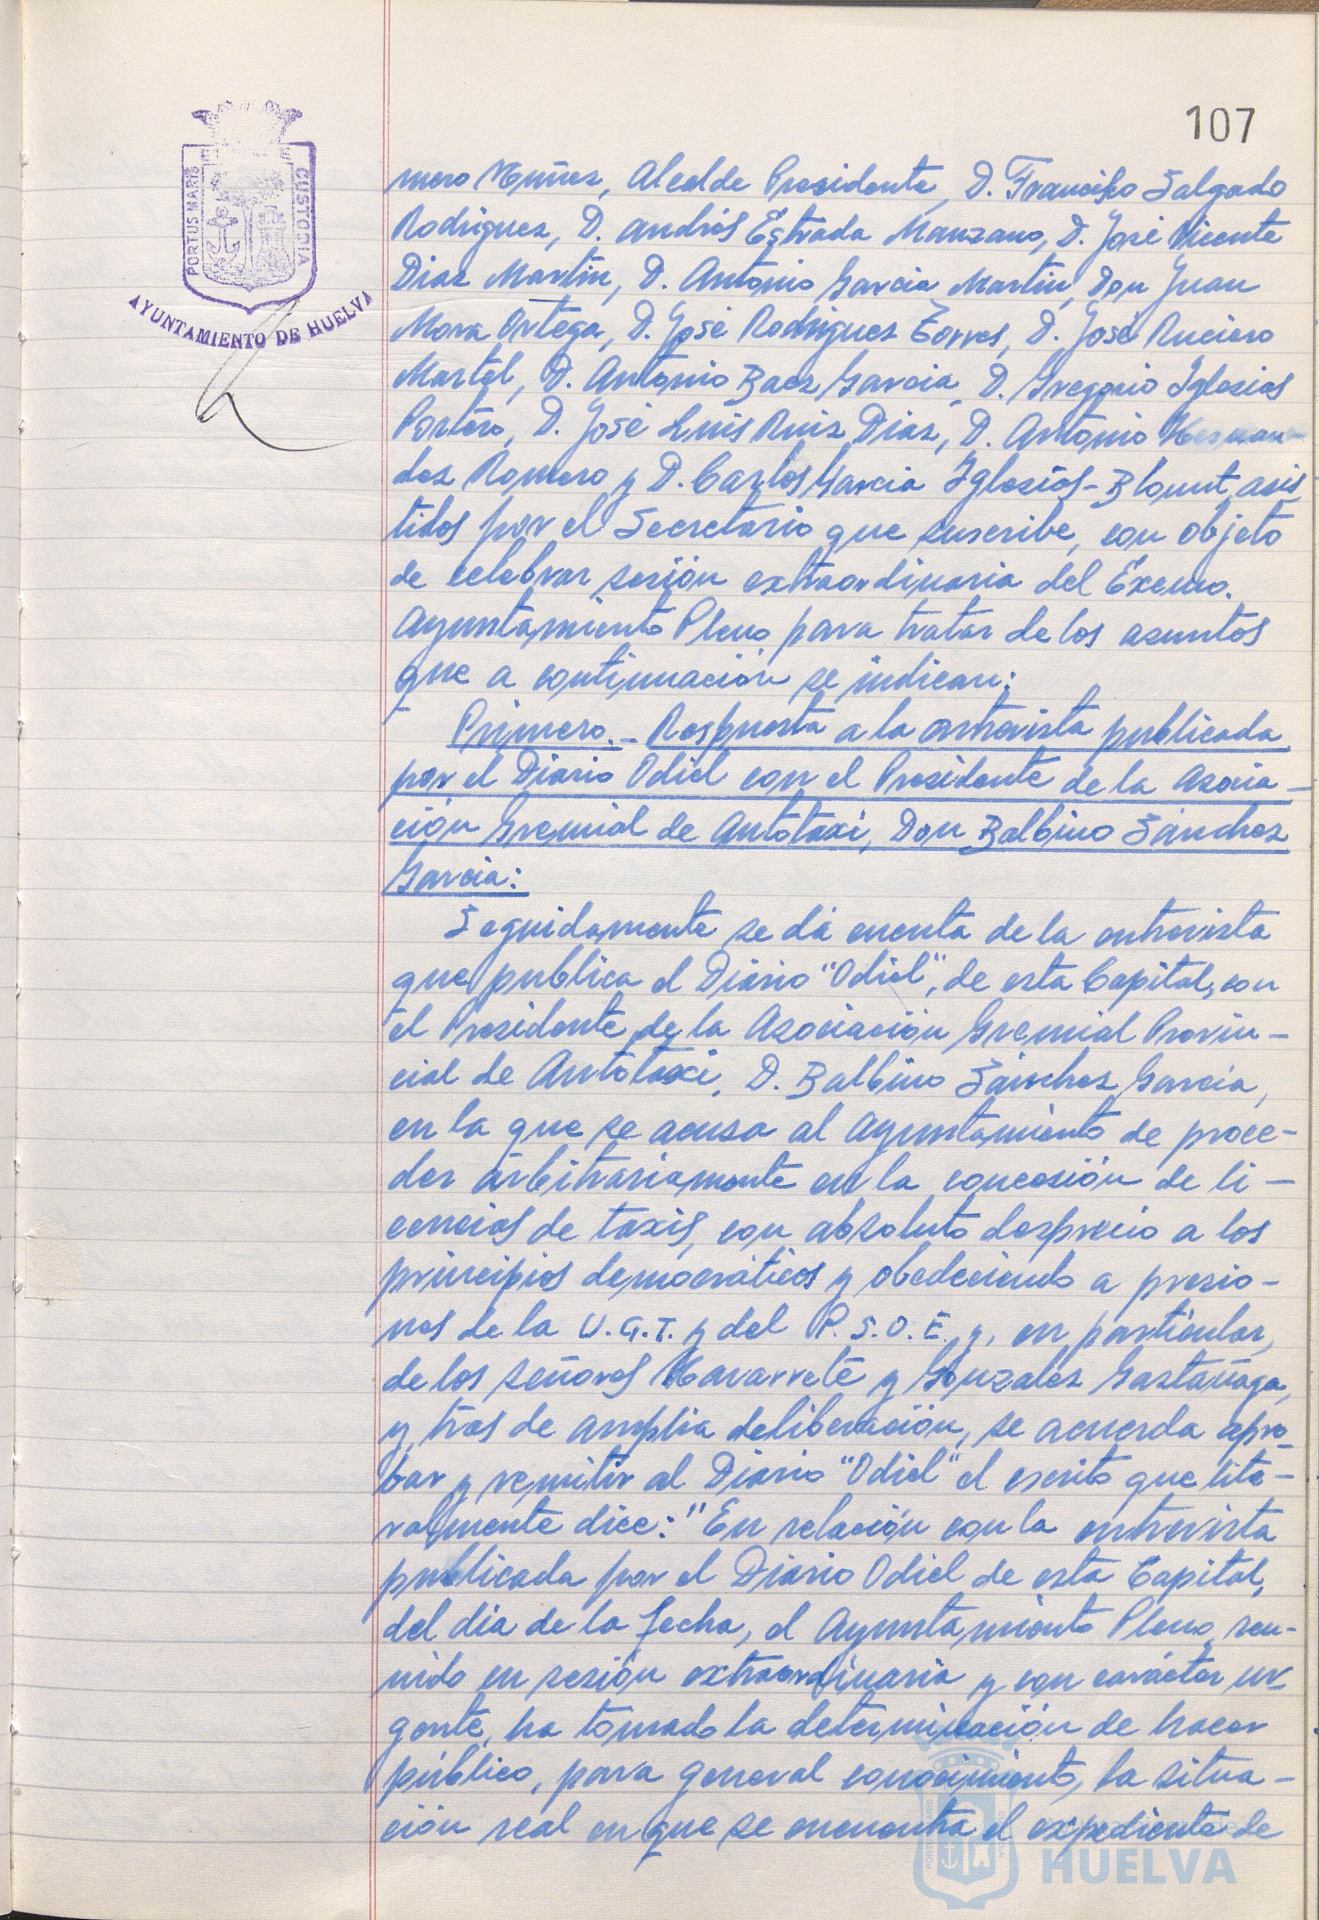 107
PORTUS MARIS
CUSTODIA
AYUNTAMIENTO DE HUELVA
mero Muñoz, Alcalde Presidente, D. Francisco Salgado
Rodriguez, D. Andrés Estrada Manzano, D. José Vicente
Diaz Martin, D. Antonio Garcia Martin, Don Juan
Mora Ortega, D. José Rodriguez Torres, D. José Ruciero
Martel, D. Antonio Baez Garcia, D. Gregorio Iglesias
Portero, D. José Luis Ruiz Diaz, D. Antonio Hernan-
dez Romero y D. Carlos Garcia Iglesias-Blount, asis
tidos por el Secretario que suscribe, con objeto
de celebrar sesión extraordinaria del Excmo.
Ayuntamiento Pleno para tratar de los asuntos
que a continuación se indican:
Primero.- Respuesta a la entrevista publicada
por el Diario Odiel con el Presidente de la Asocia-
ción Gremial de Autotaxi, Don Balbino Sánchez
Garcia:
Seguidamente se dá cuenta de la entrevista
que publica el Diario "Odiel", de esta Capital, con
el Presidente de la Asociación Gremial Provin-
cial de Autotaxi, D. Balbino Sánchez Garcia,
en la que se acusa al Ayuntamiento de proce-
der arbitrariamente en la concesión de li-
cencias de taxis, con absoluto desprecio a los
principios democráticos y obedeciendo a presio-
nes de la U.G.T. y del P.S.O.E. y, en particular,
de los señores Navarrete y González Gaztañaga,
y, tras de amplia deliberación, se acuerda apro-
bar y remitir al Diario "Odiel" el escrito que lite-
ralmente dice: "En relación con la entrevista
publicada por el Diario Odiel de esta Capital,
del dia de la fecha, el Ayuntamiento Pleno, reu-
nido en sesión extraordinaria y con carácter ur
gente, ha tomado la determinación de hacer
público, para general conocimiento, la situa-
ción real en que se encuentra el expediente de
HUELVA